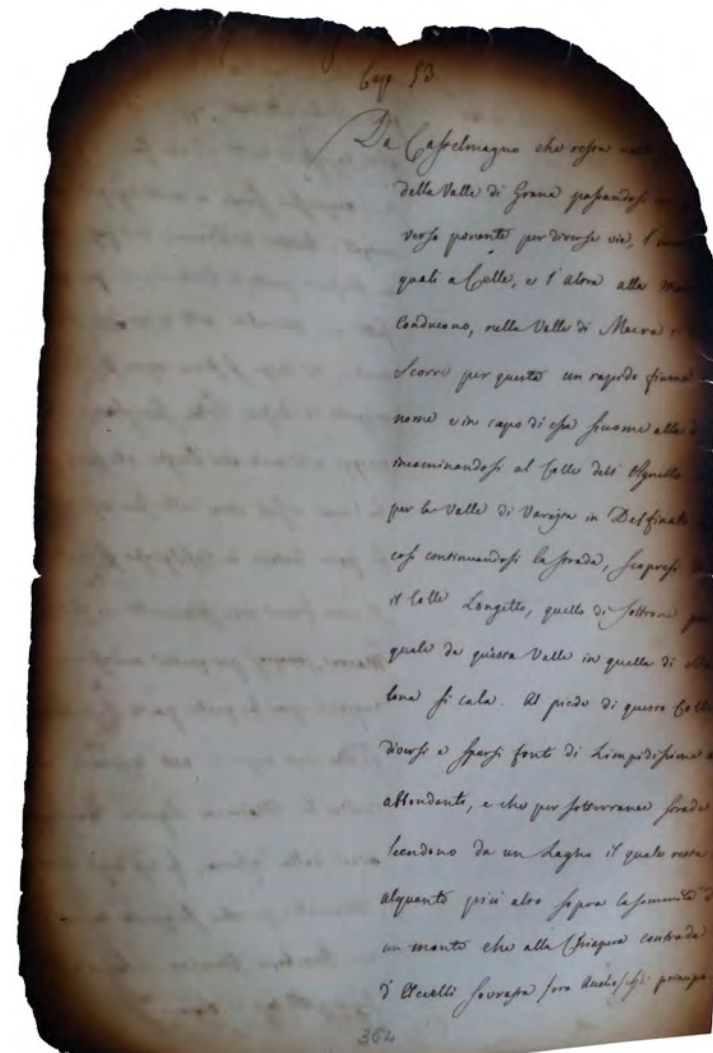 Cap. 53.
Da Castelmagno che resta nell
della Valle di Grana passandosi
verso ponente per diverse vie, l'una
quali a Celle, e l'altra alla Mar
conducono, nella Valle di Macra
Scorre per questa un rapido fiume
nome e in capo di essa siccome alla
incaminandosi al Colle dell'Agnello
per la Valle di Varajta in Delfinato
così continuandosi la strada, scopresi
il Colle Longetto, quello di Soltrone
quale da questa Valle in quella di
lona si cala. Al piede di questo Colle
diversi e sparsi fonti di Limpidissime
abbondante, e che per sotterranee strade
scendono da un Lagho il quale resta
alquanto più alto sopra la sommità d
un monte che alla Chiapera contrada
d'Accelli sovrasta princip
364